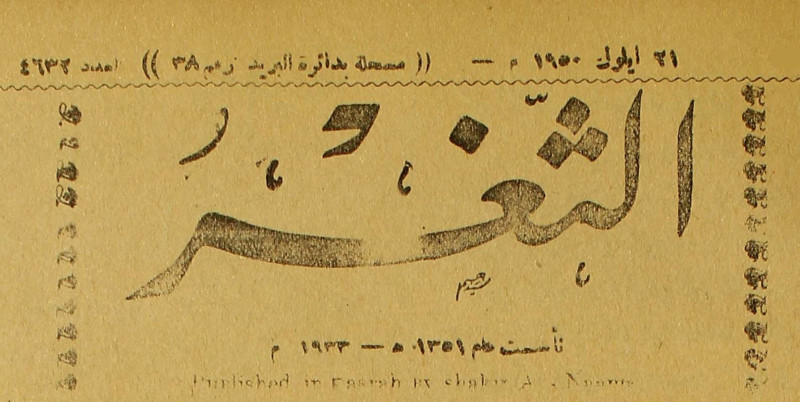 ٢١ ايلول ١٩٥٠ م — (( مسجلة بدائرة البريد رقم ٣٨ )) العدد ٤٦٣٢
الثغر
تأسست عام ١٣٥١ ه — ١٩٣٣ م
Published in Basrah by Shakir A.